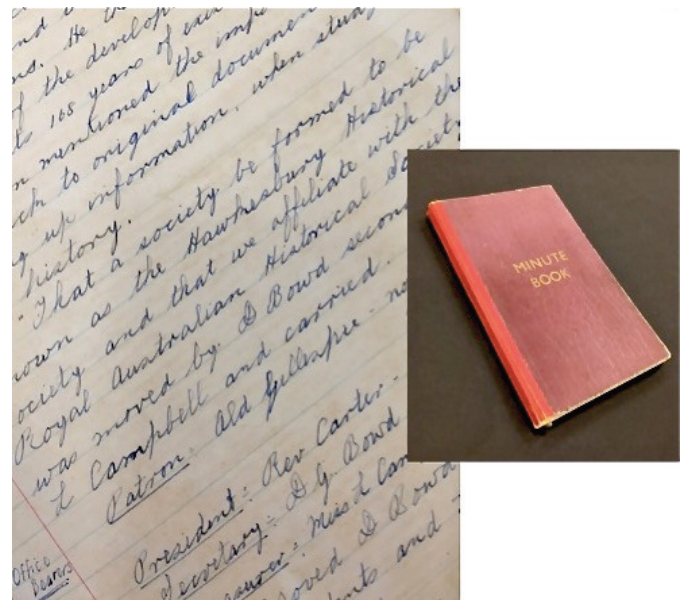 ns. He
of the develop
s 168 years of
n mentioned the imp
ck to original documen
g up information, when study
history.
"That a society be formed to be
nown as the Hawkesbury Historical
ociety and that we affiliate with the
Royal Australian Historical Society
was moved by D Bowd second
L Campbell and carried.
Patron: Ald Gillespie - no
President: Rev Carter -
Secretary: D. G. Bowd
asurer: Miss L Cam
oved D Bowd
nts and
Office
Bearers
MINUTE
BOOK